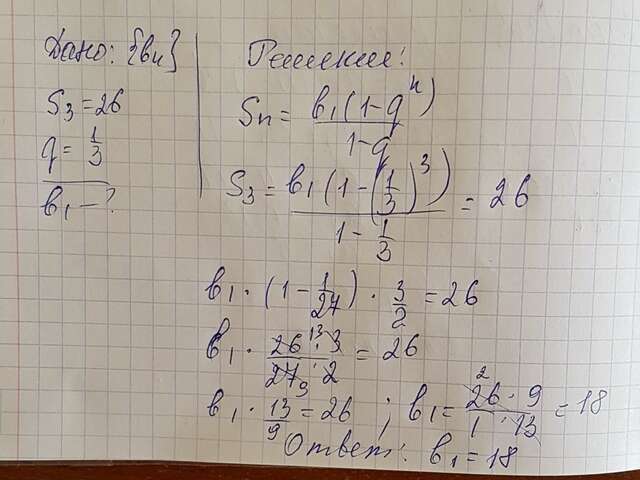 Дано: {bn}
S3 = 26
q = 1/3
b1 - ?
Решение:
Sn = b1(1-q^n) / 1-q
S3 = b1(1-(1/3)^3) / 1-1/3 = 26
b1 · (1 - 1/27) · 3/2 = 26
b1 · 26 13 · 3 / 27 9 · 2 = 26
b1 · 13/9 = 26 ; b1 = 26 2 · 9 / 1 · 13 = 18
Ответ: b1 = 18